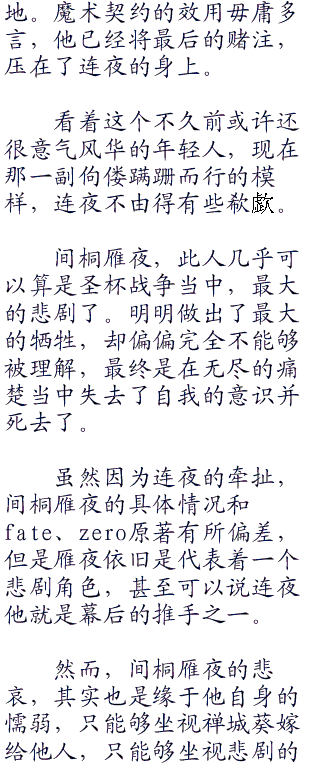 地。魔术契约的效用毋庸多
言，他已经将最后的赌注，
压在了连夜的身上。
看着这个不久前或许还
很意气风华的年轻人，现在
那一副佝偻蹒跚而行的模
样，连夜不由得有些欷歔。
间桐雁夜，此人几乎可
以算是圣杯战争当中，最大
的悲剧了。明明做出了最大
的牺牲，却偏偏完全不能够
被理解，最终是在无尽的痛
楚当中失去了自我的意识并
死去了。
虽然因为连夜的牵扯，
间桐雁夜的具体情况和
fate、zero原著有所偏差，
但是雁夜依旧是代表着一个
悲剧角色，甚至可以说连夜
他就是幕后的推手之一。
然而，间桐雁夜的悲
哀，其实也是缘于他自身的
懦弱，只能够坐视禅城葵嫁
给他人，只能够坐视悲剧的